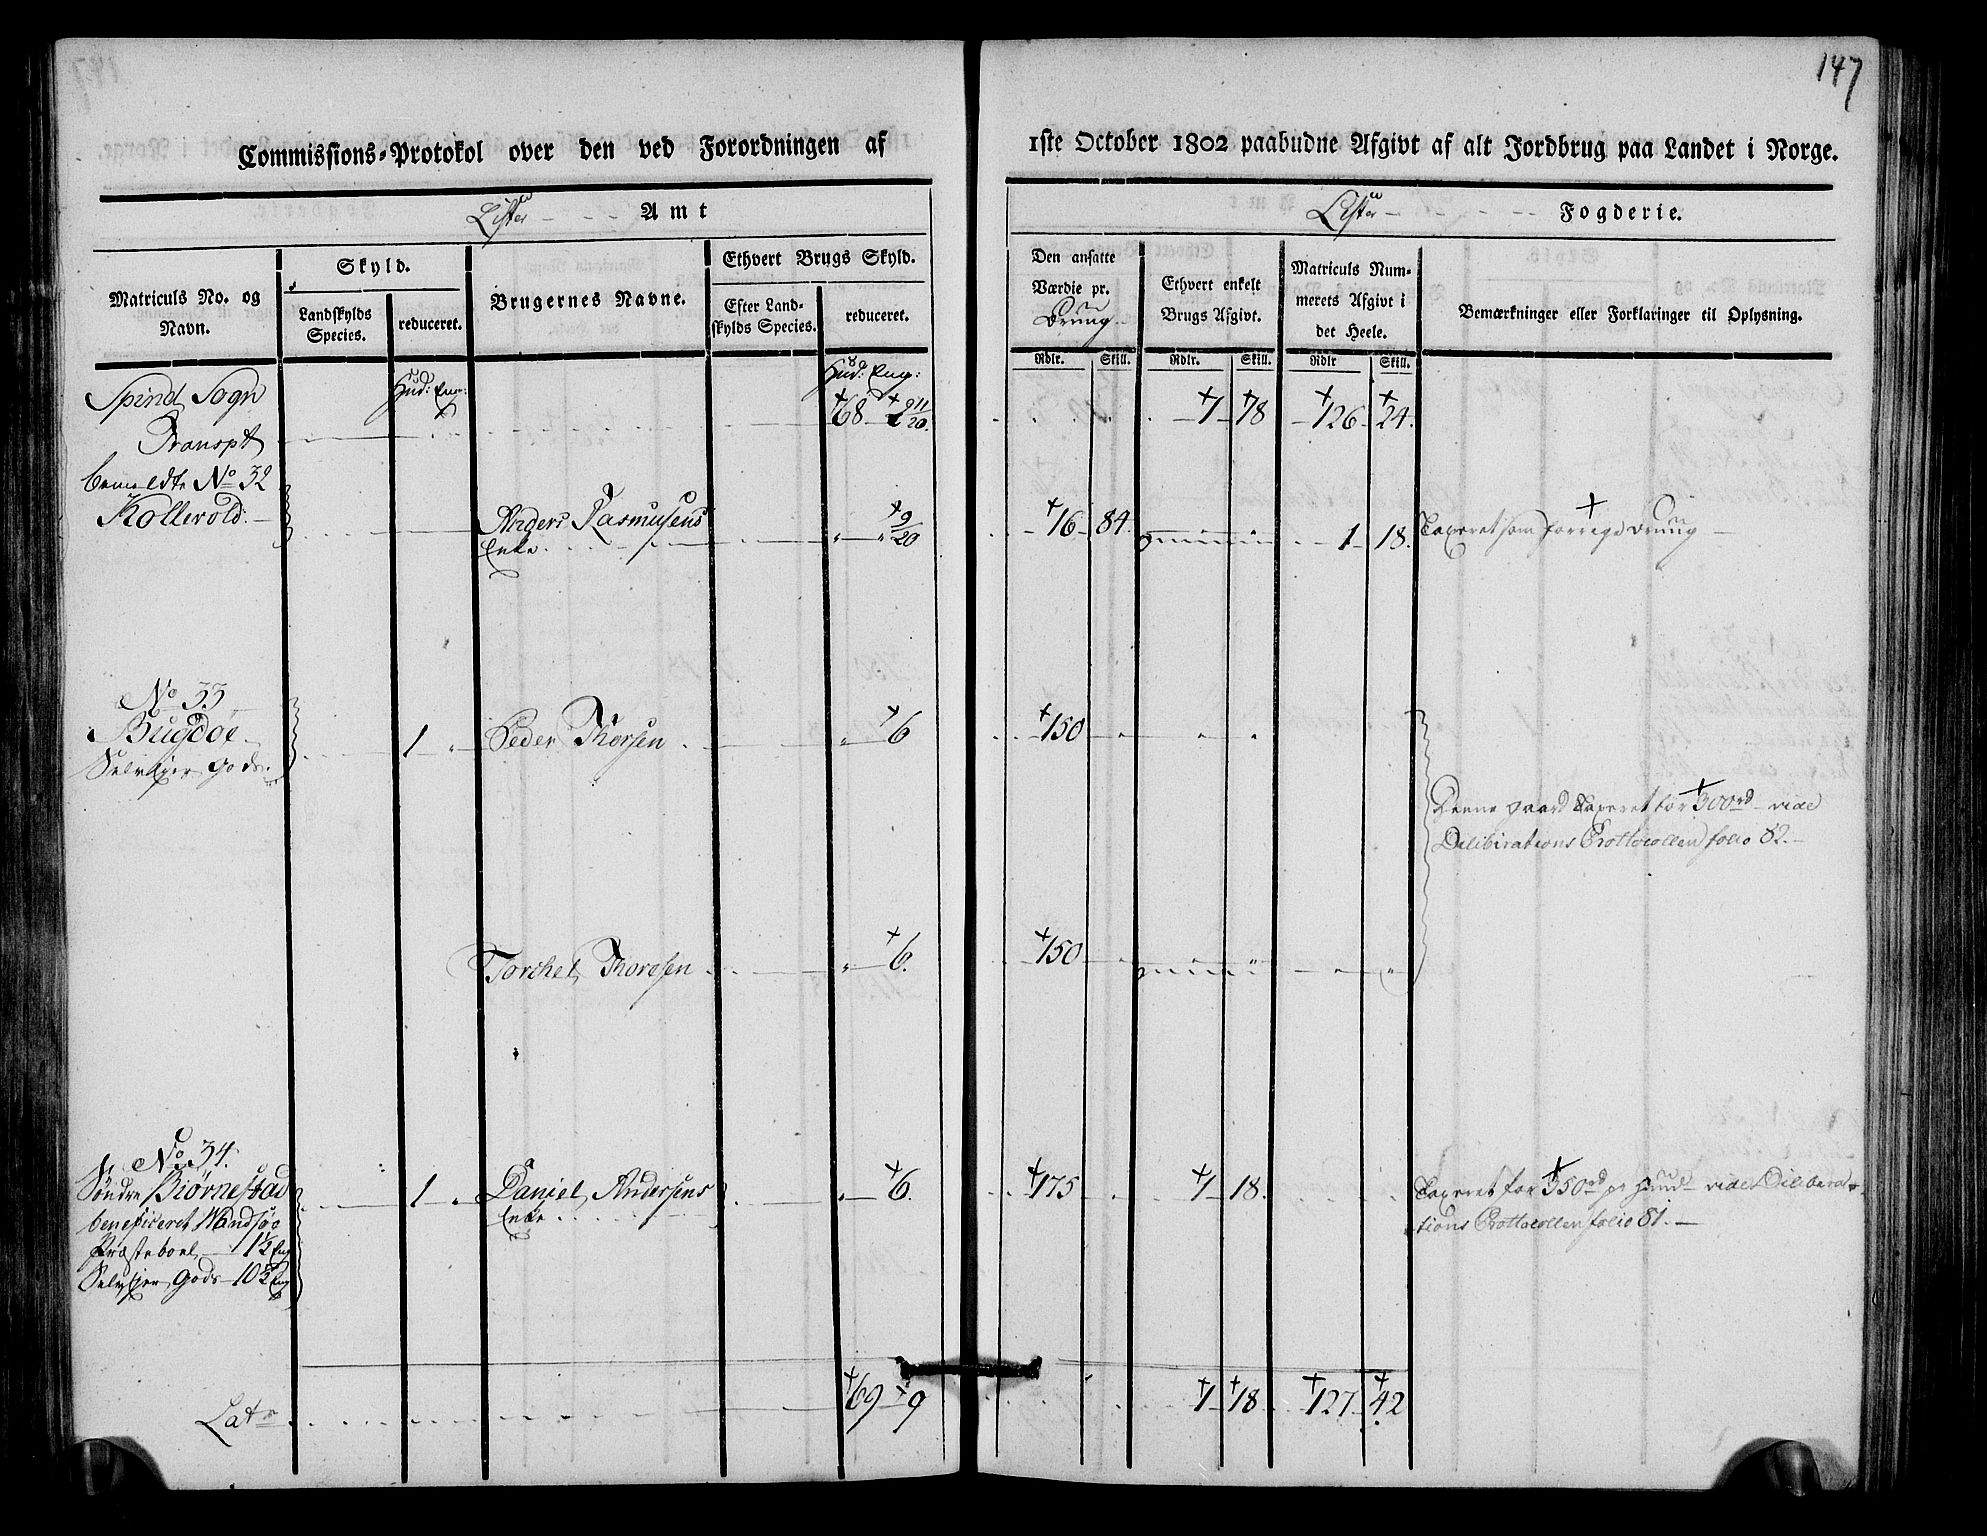 147
Commissions-Protokol over den ved Forordningen af
1ste October 1802 paabudne Afgivt af alt Jordbrug paa Landet i Norge.
Lister Amt
Lister Fogderie.
Matriculs No. og Navn.
Skyld.
Landskylds Species.
reduceret.
Brugernes Navne.
Ethvert Brugs Skyld.
Efter Landskylds Species.
reduceret.
Den ansatte Værdie pr. Brug
Rdlr. Skill.
Ethvert enkelt Brugs Afgivt.
Rdlr. Skill.
Matriculs Nummerets Afgivt i det Heele.
Rdlr Skill.
Bemærkninger eller Forklaringer til Oplysning.
Hud: Eng:
Hud: Eng:
Spind Sogn
Transpt 68 2 11/20 1 78 126 24.
bemeldte No 32
Kollevold.
Anders Rasmusens
Enke 9/20 16 84. 1 18. Taxeret som forrige Brug
No 33
Bugdøe 1 Peder Thorsen 6 150
Selvejer Gods.
Denne gaard Taxeret for 300rd vide
Deliberations Prottocollen folio 82.
Torckel Thoresen 6. 150
No 34.
Søndre Biørnestad 1 Daniel Andersens 6. 175 1 18. Taxeret for 350rd pr Huud vide Deliberations
Enke
Prottocollen folio 81.
beneficeret Wandsøe
Præsteboel 1½ Eng
Selvejer Gods 10½ Eng
Lat 69 9 1 18 127 42